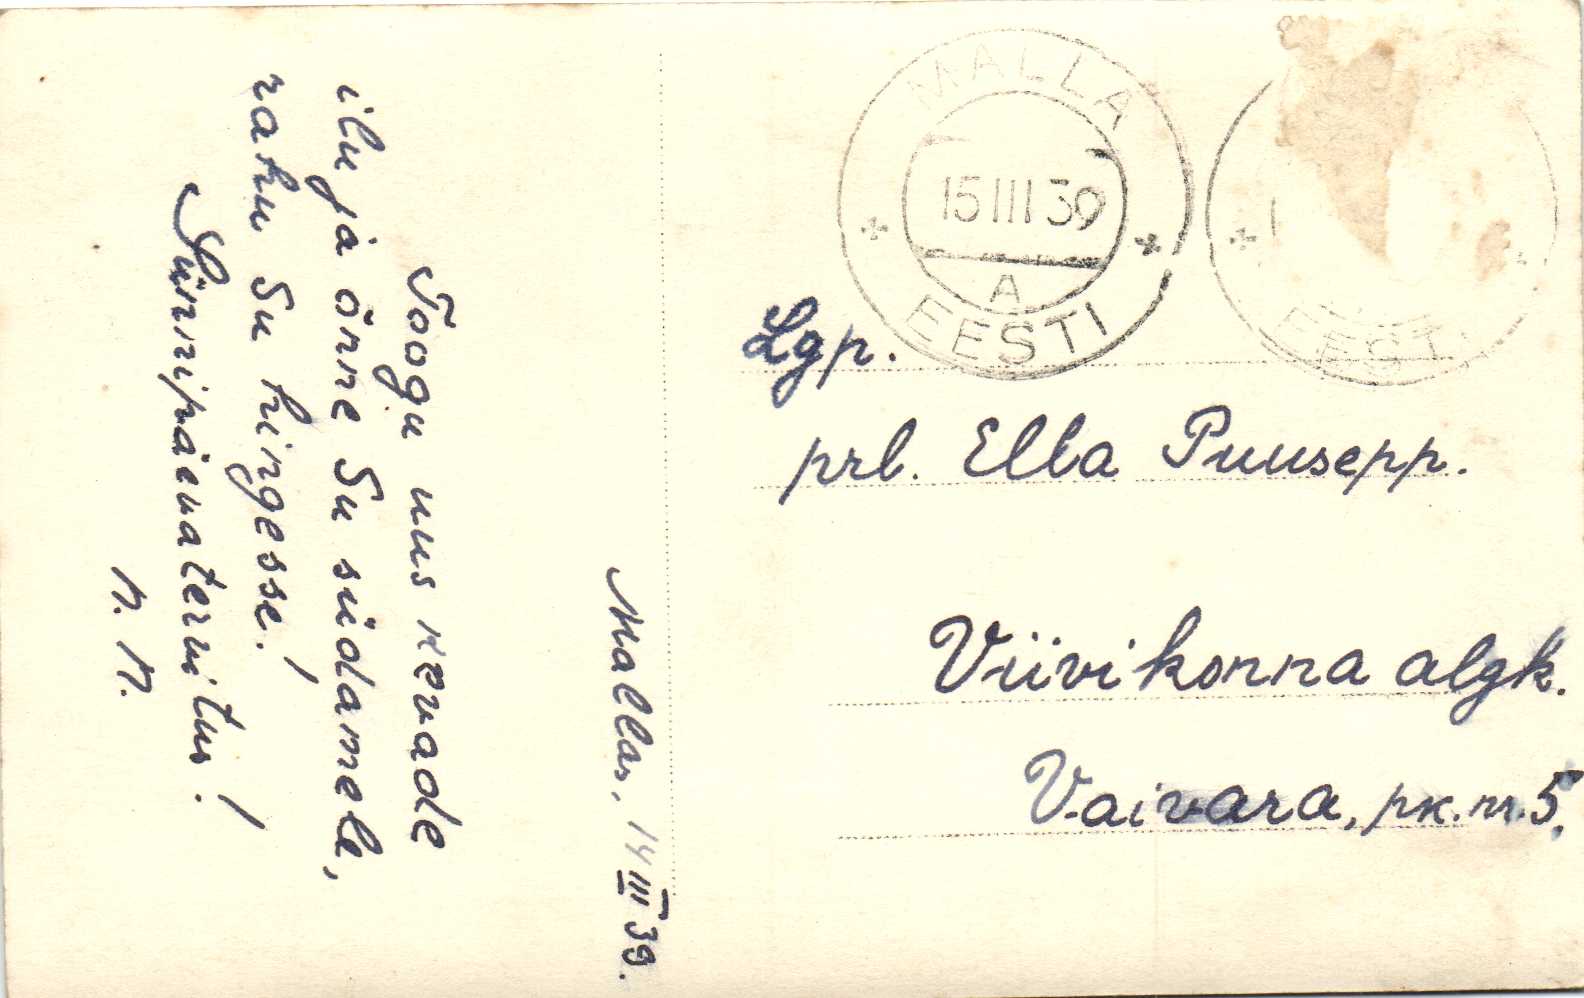 Mallas, 14 III 39.
Toogu uus kevade
ilu ja õnne Su südamele,
rahu Su hingesse!
Sünnipäevatervitus!
N. N.
MALLA
15 III 39
A
EESTI
EESTI
Lgp.
prl. Ella Puusepp.
Viivikonna algk.
Vaivara, pk. nr. 5.